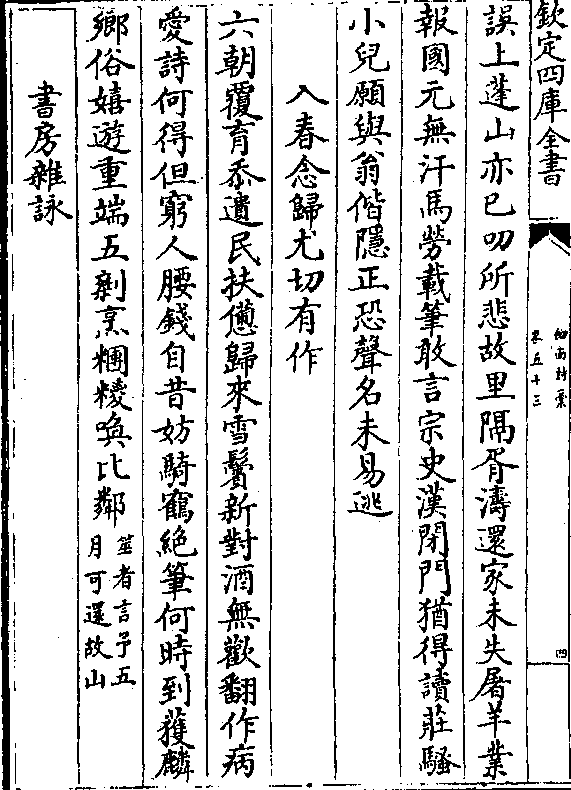 欽定四庫全書
劒南詩藁
卷五十三
四
誤上蓬山亦已叨所悲故里隔胥濤還家未失屠羊業
報國元無汗馬勞載筆敢言宗史漢閉門猶得讀莊騷
小兒願與翁偕隱正恐聲名未易逃
入春念歸尤切有作
六朝覆育忝遺民扶憊歸來雪鬢新對酒無歡翻作病
愛詩何得但窮人腰錢自昔妨騎鶴絶筆何時到獲麟
鄉俗嬉遊重端五剩烹糰糭喚比鄰
筮者言予五
月可還故山
書房雜詠